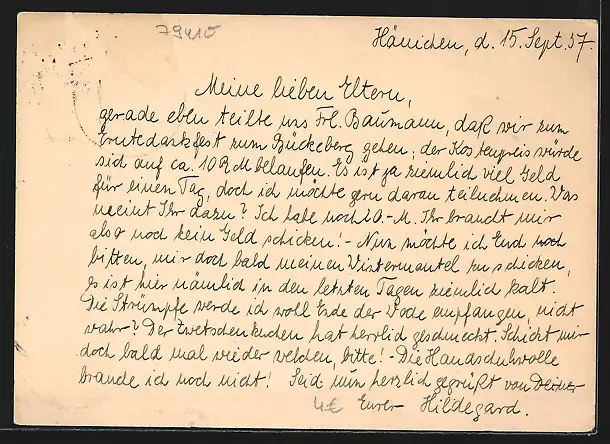 79410
Hänichen, d. 15. Sept. 37.
Meine lieben Eltern,
gerade eben teilte uns Frl. Baumann, daß wir zum
Erntedankfest zum Bückeberg gehen; der Kostenpreis würde
sich auf ca. 10 RM belaufen. Es ist ja ziemlich viel Geld
für einen Tag, doch ich möchte gern daran teilnehmen. Was
meint Ihr dazu? Ich habe noch 20.-M. Ihr braucht mir
also noch kein Geld schicken! - Nun möchte ich Euch noch
bitten, mir doch bald meinen Wintermantel zu schicken,
es ist hier nämlich in den letzten Tagen ziemlich kalt.
Die Strümpfe werde ich woll Ende der Woche empfangen, nicht
wahr? Der Zwetschenkuchen hat herrlich geschmeckt. Schickt mir
doch bald mal wieder welchen, bitte! - Die Handschuhwolle
brauche ich noch nicht! Seid nun herzlich gegrüßt von Deiner
4€ Eurer Hildegard.